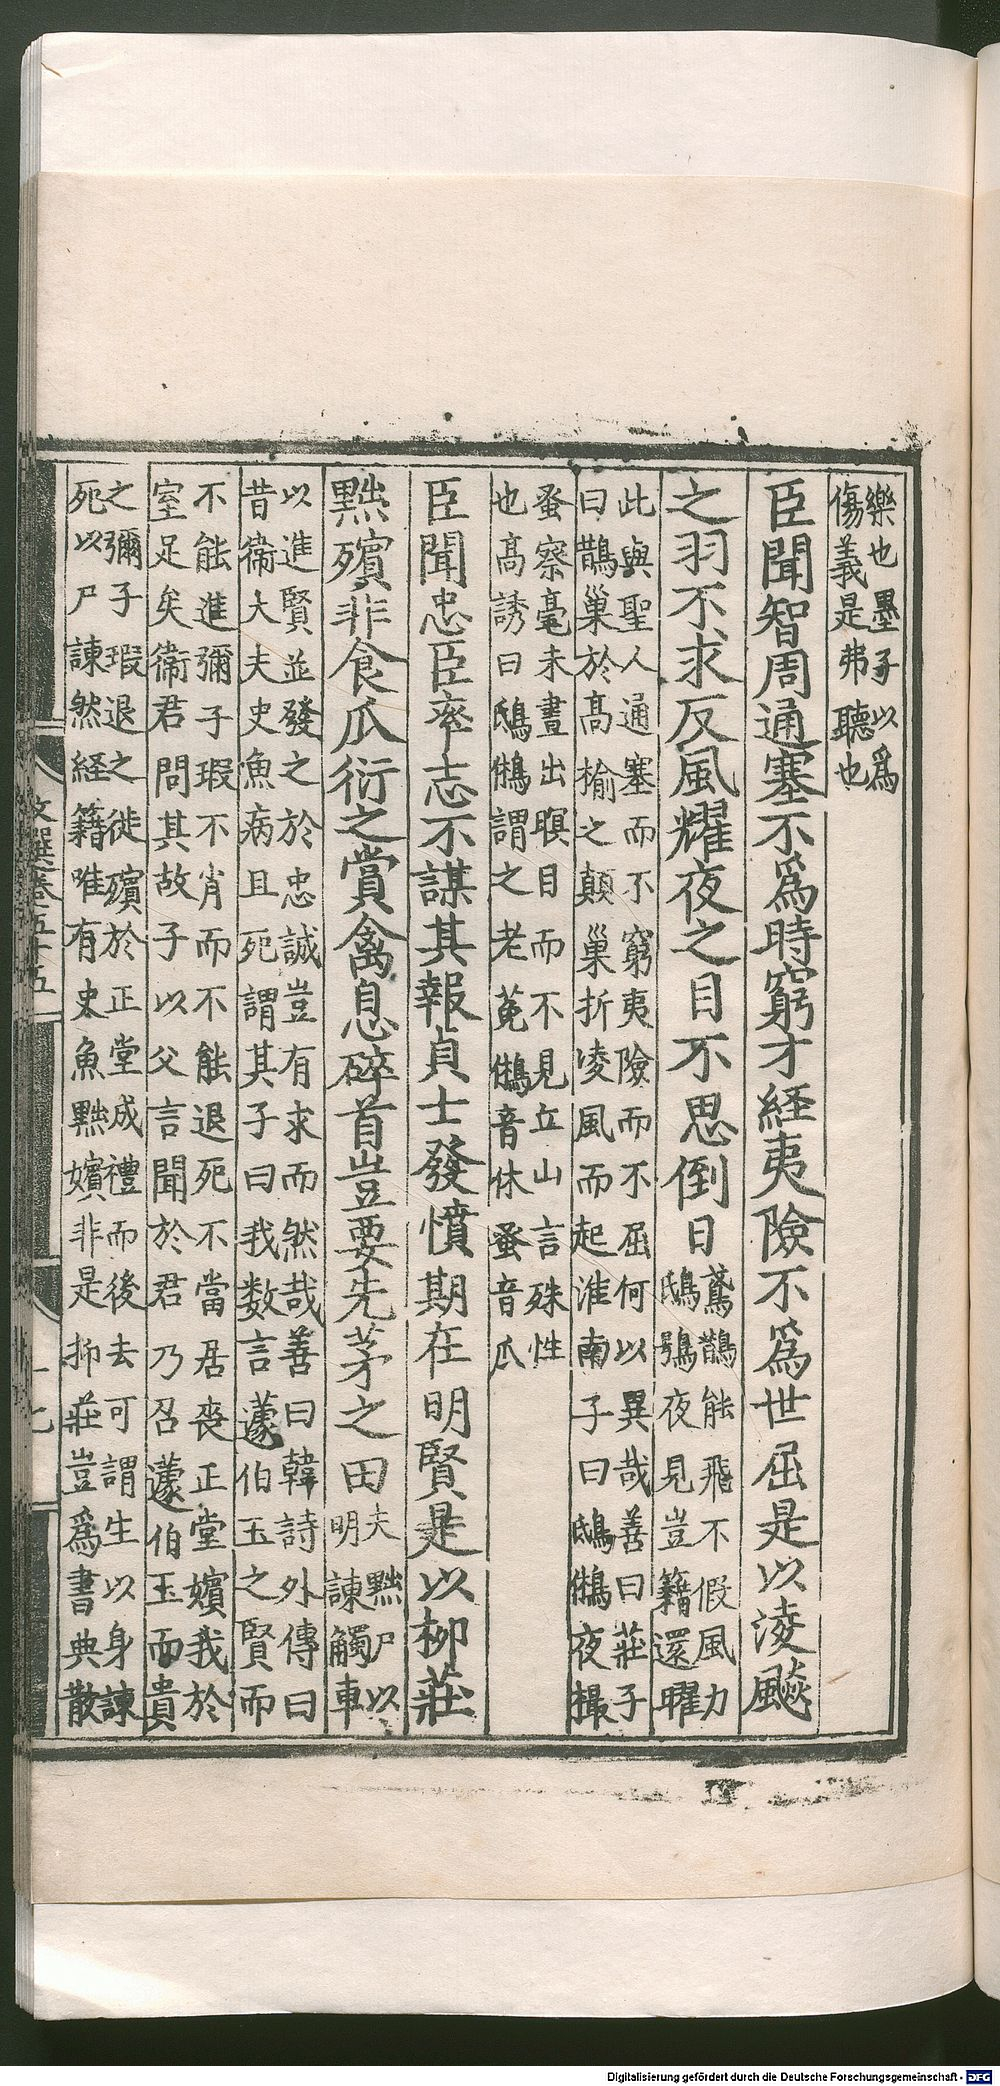 樂也墨子以爲
傷義是弗聽也
臣聞智周通塞不爲時窮才経夷險不爲世屈是以淩飈
之羽不求反風耀夜之目不思倒日
鳶鵲能飛不假風力
鴟鴞夜見豈籍還曜
此與聖人通塞而不窮夷險而不屈何以異哉善曰莊子
曰鵲巢於高榆之顛巢折凌風而起淮南子曰鴟鵂夜撮
蚤察毫末晝出暝目而不見丘山言殊性
也高誘曰鴟鵂謂之老菟鵂音休蚤音爪
臣聞忠臣率志不謀其報貞士發憤期在明賢是以柳莊
黜殯非食瓜衍之賞禽息碎首豈要先茅之田
夫黜尸以
明諫觸車
以進賢並發之於忠誠豈有求而然哉善曰韓詩外傳曰
昔衛大夫史魚病且死謂其子曰我数言蘧伯玉之賢而
不能進彌子瑕不肖而不能退死不當居喪正堂嬪我於
室足矣衛君問其故子以父言聞於君乃召蘧伯玉而貴
之彌子瑕退之徙殯於正堂成禮而後去可謂生以身諫
死以尸諫然経籍唯有史魚黜嬪非是抑莊豈爲書典散
文選卷五十五
十七
Digitalisierung gefördert durch die Deutsche Forschungsgemeinschaft - DFG